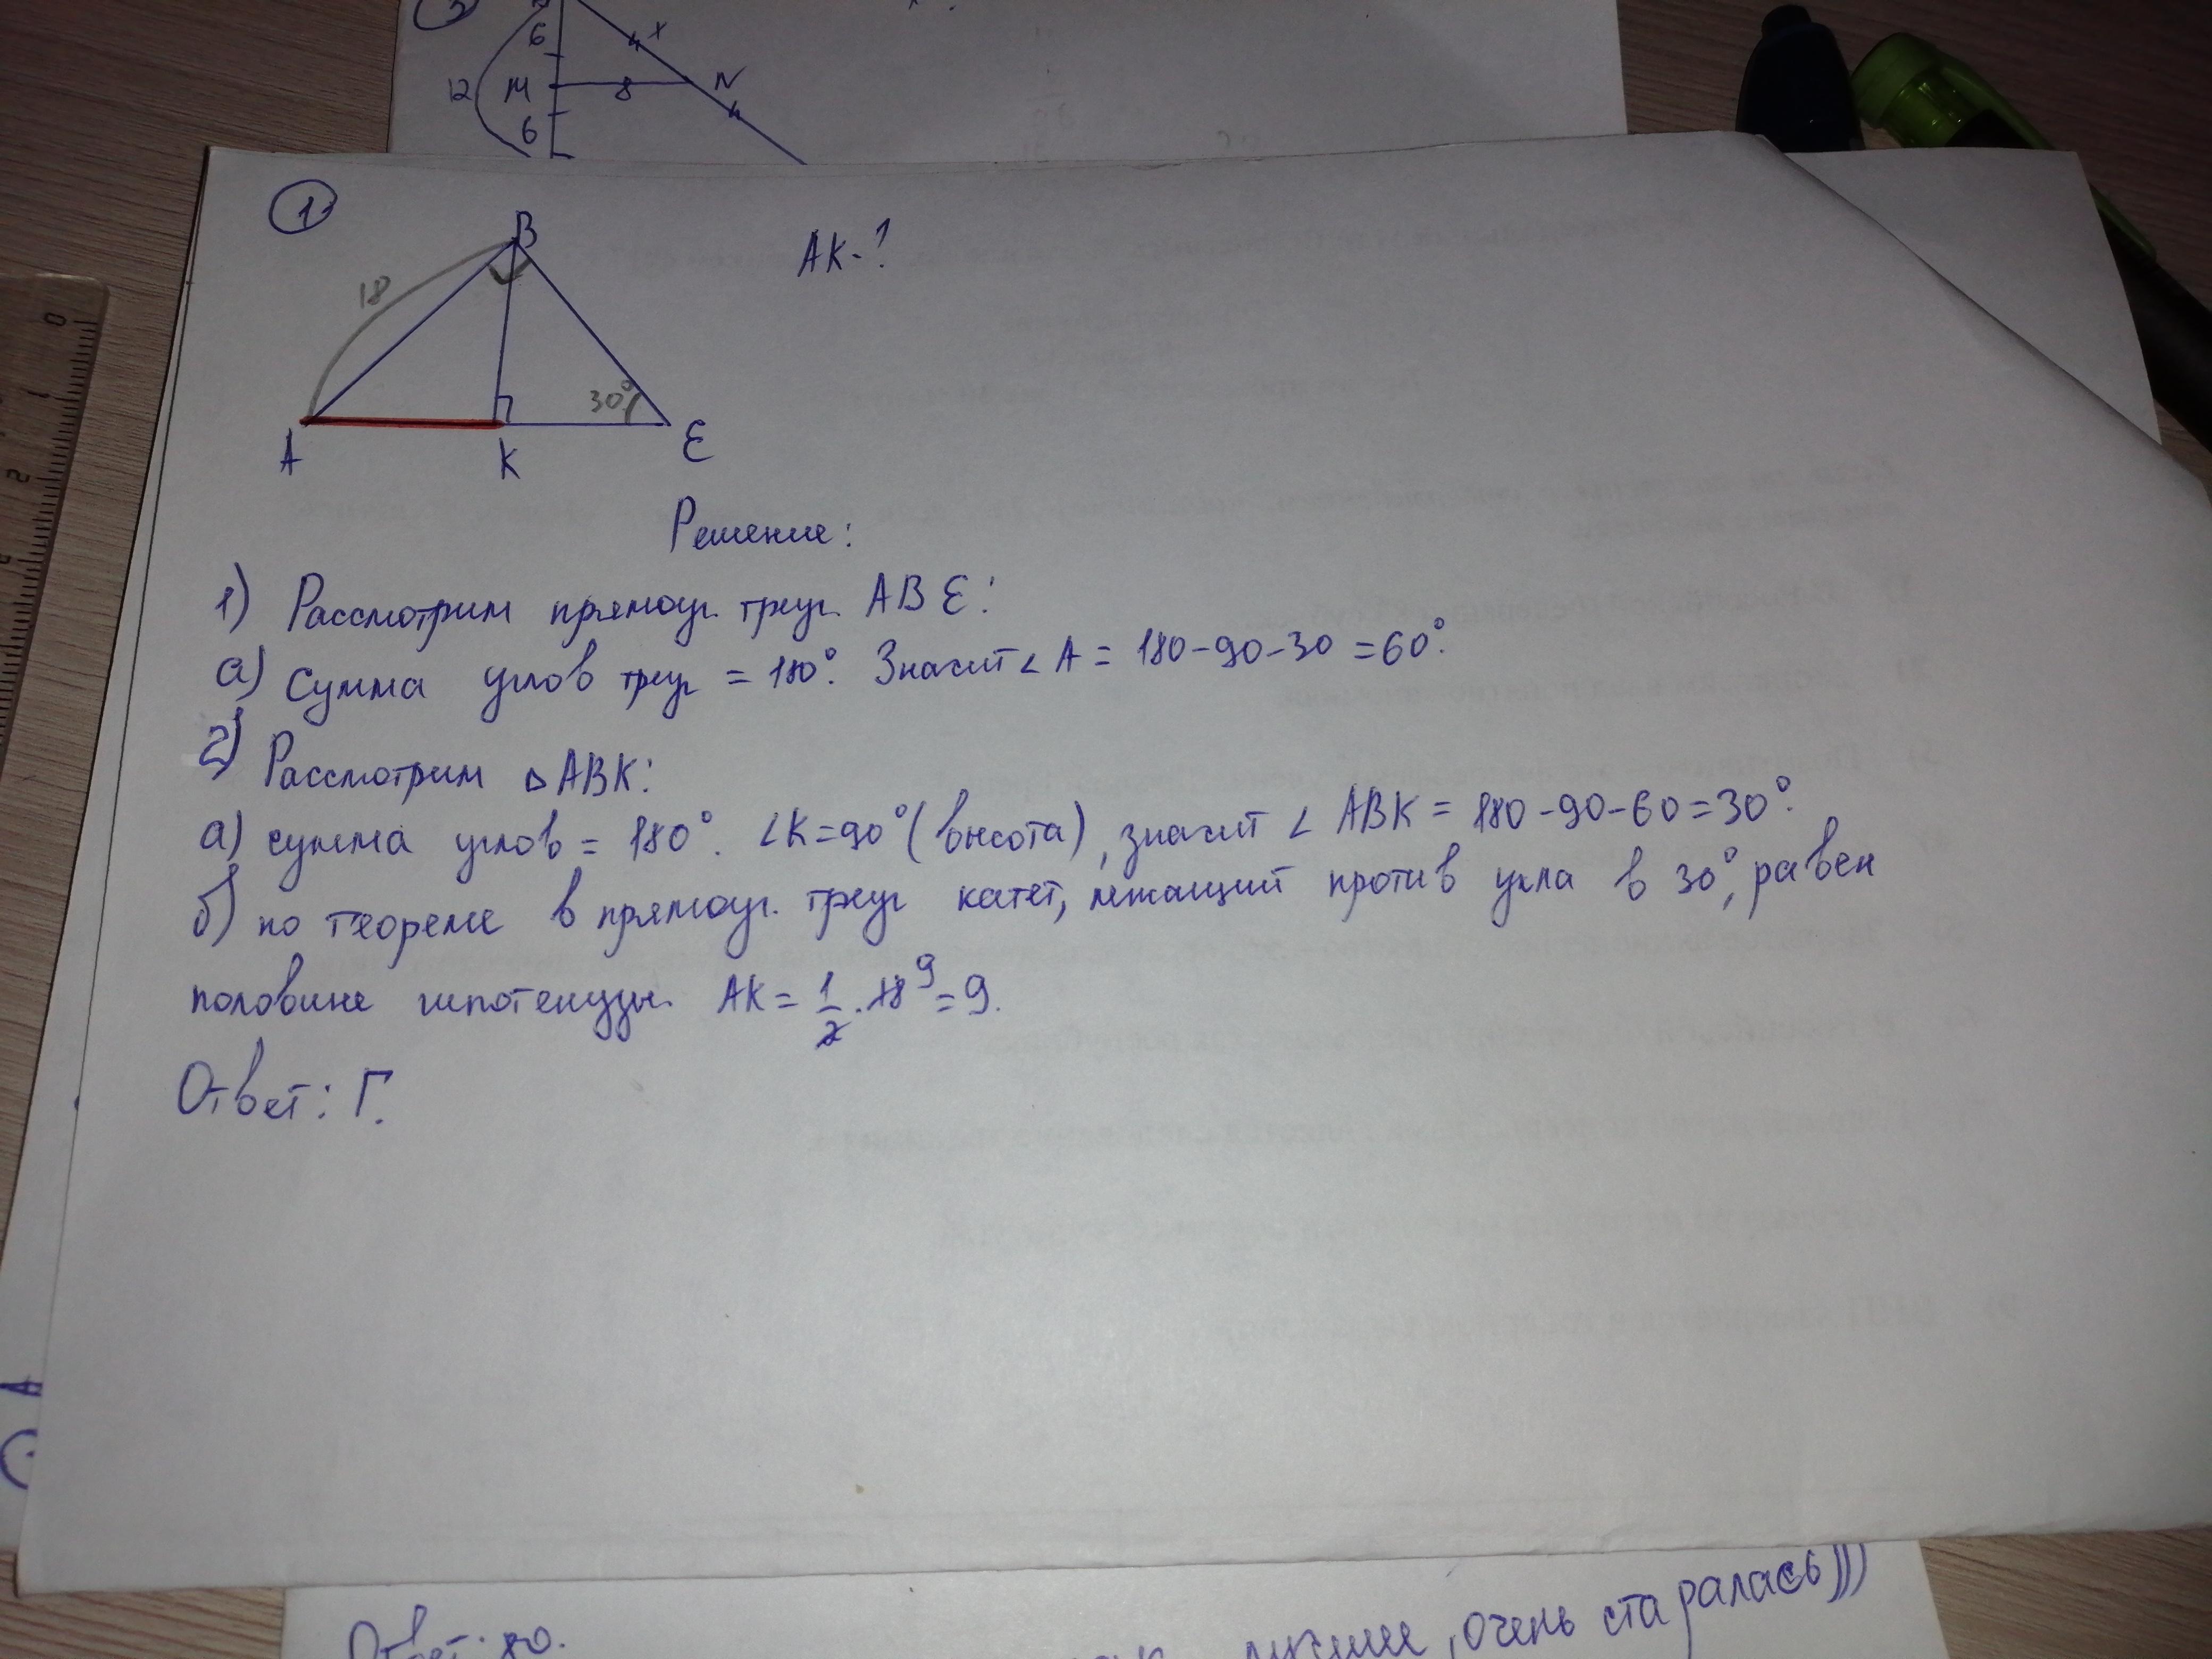 6
x
12
M
8
N
6
1.
B
AK-?
18
30°
A
K
E
Решение:
1) Рассмотрим прямоуг. треуг. ABE:
а) Сумма углов треуг = 180°. Значит ∠A = 180-90-30 = 60°.
2) Рассмотрим △ABK:
а) сумма углов = 180°. ∠K=90° (высота), значит ∠ABK = 180-90-60=30°.
б) по теореме в прямоуг. треуг катет, лежащий против угла в 30°, равен
половине гипотенузы. AK = 1/2 · 18 9 = 9.
Ответ: Г.
Ответ: 80.
лучшее, очень старалась)))
0
1
2